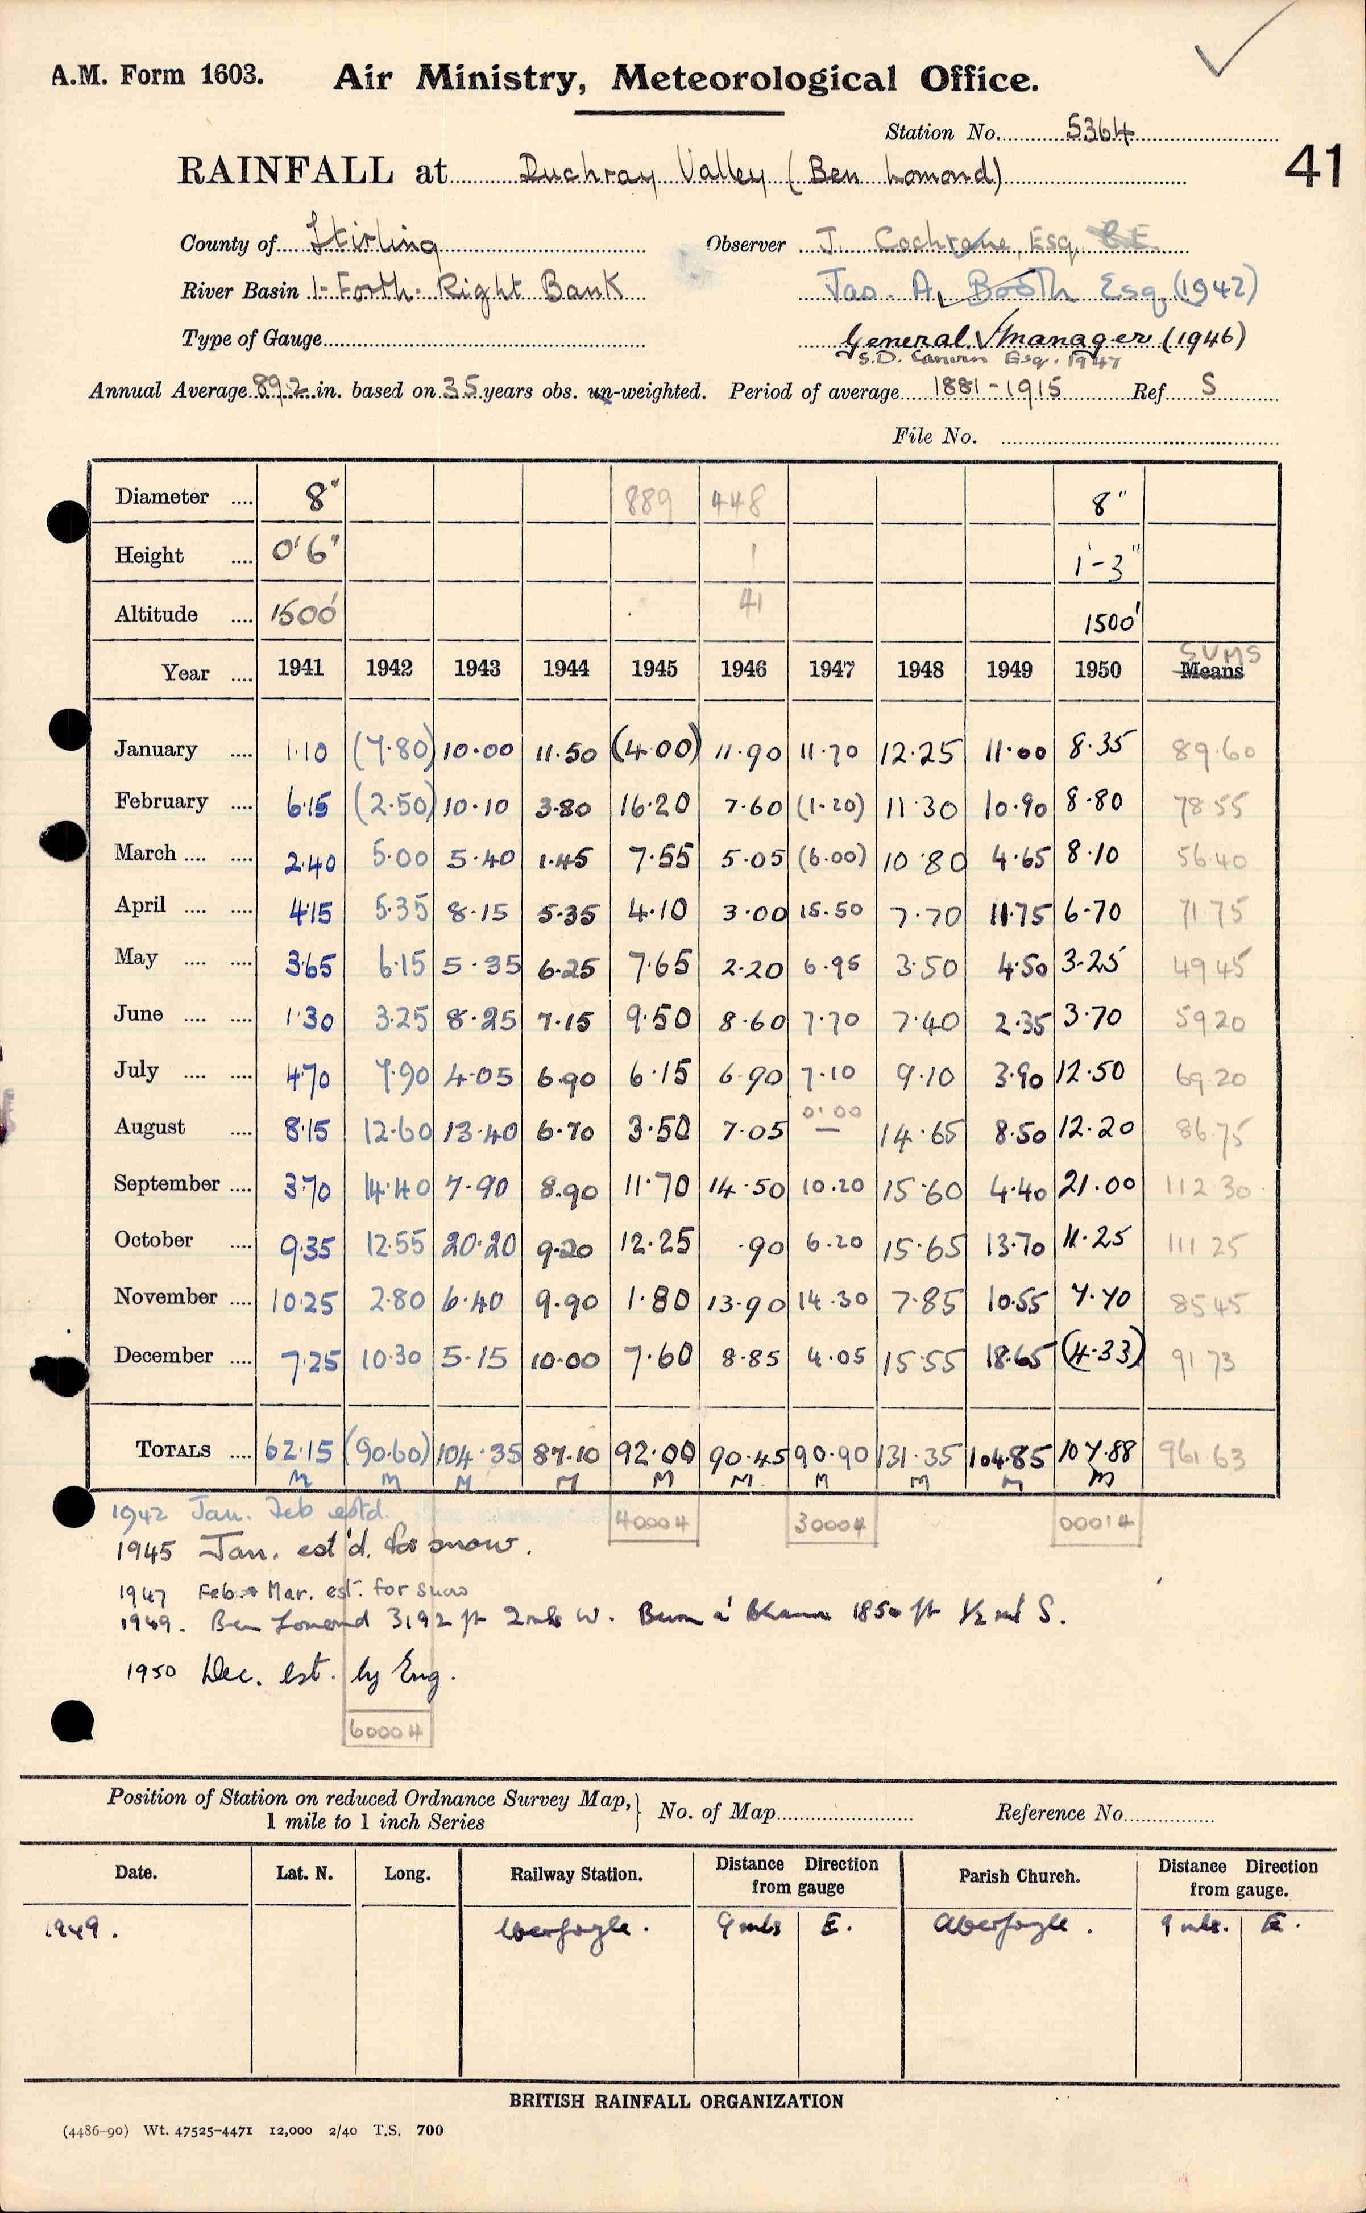 A.M. Form 1603. Air Ministry, Meteorological Office.
Station No. 5364
41
RAINFALL at Duchray Valley (Ben Lomond)
County of Stirling Observer J. Cochrane, Esq, C.E.
River Basin 1- Forth. Right Bank Jas. A. Booth Esq, (1942)
Type of Gauge General Manager (1946)
S.D. Cameron Esq. 1947
Annual Average 89.2 in. based on 35 years obs. un-weighted. Period of average 1881-1915 Ref S
File No.
Diameter .... 8" 889 448 8"
Height .... 0'6" 1 1'-3"
Altitude .... 1500' 41 1500'
SUMS
Year .... 1941 1942 1943 1944 1945 1946 1947 1948 1949 1950 Means
January .... 1.10 (7.80) 10.00 11.50 (4.00) 11.90 11.70 12.25 11.00 8.35 89.60
February .... 6.15 (2.50) 10.10 3.80 16.20 7.60 (1.20) 11.30 10.90 8.80 78.55
March .... .... 2.40 5.00 5.40 1.45 7.55 5.05 (6.00) 10.80 4.65 8.10 56.40
April .... .... 4.15 5.35 8.15 5.35 4.10 3.00 15.50 7.70 11.75 6.70 71.75
May .... .... 3.65 6.15 5.35 6.25 7.65 2.20 6.95 3.50 4.50 3.25 49.45
June .... .... 1.30 3.25 8.25 7.15 9.50 8.60 7.70 7.40 2.35 3.70 59.20
July .... .... 4.70 7.90 4.05 6.90 6.15 6.90 7.10 9.10 3.90 12.50 69.20
0.00
August .... 8.15 12.60 13.40 6.70 3.50 7.05 — 14.65 8.50 12.20 86.75
September .... 3.70 14.40 7.90 8.90 11.70 14.50 10.20 15.60 4.40 21.00 112.30
October .... 9.35 12.55 20.20 9.20 12.25 .90 6.20 15.65 13.70 11.25 111.25
November .... 10.25 2.80 6.40 9.90 1.80 13.90 14.30 7.85 10.55 7.70 85.45
December .... 7.25 10.30 5.15 10.00 7.60 8.85 4.05 15.55 18.65 (4.33) 91.73
TOTALS .... 62.15 (90.60) 104.35 87.10 92.00 90.45 90.90 131.35 104.85 107.88 961.63
M M M M M M M M M M
1942 Jan. Feb estd.
40004 30004 00014
1945 Jan. est'd. for snow.
1947 Feb. + Mar. est. for snow
1949. Ben Lomond 3192 ft 2 mls W. 1850 ft 1/2 ml S.
1950 Dec. est. by Eng.
60004
Position of Station on reduced Ordnance Survey Map,
1 mile to 1 inch Series } No. of Map Reference No.
Date. Lat. N. Long. Railway Station. Distance Direction from gauge Parish Church. Distance Direction from gauge.
1949. Aberfoyle. 9 mls E. Aberfoyle. 9 mls. E.
BRITISH RAINFALL ORGANIZATION
(4486-90) Wt. 47525-4471 12,000 2/40 T.S. 700